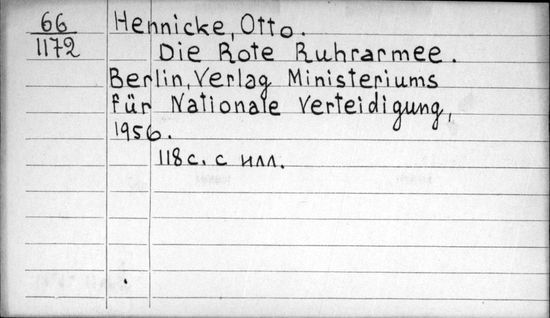 66
1172
Hennicke, Otto.
Die Rote Ruhrarmee.
Berlin, Verlag Ministeriums
für Nationale Verteidigung,
1956.
118 с. с илл.